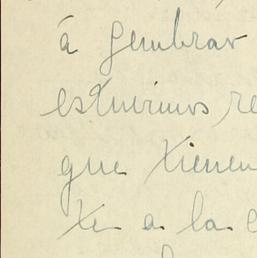 á sembrar
estuvimos re
que tienen
te a la c